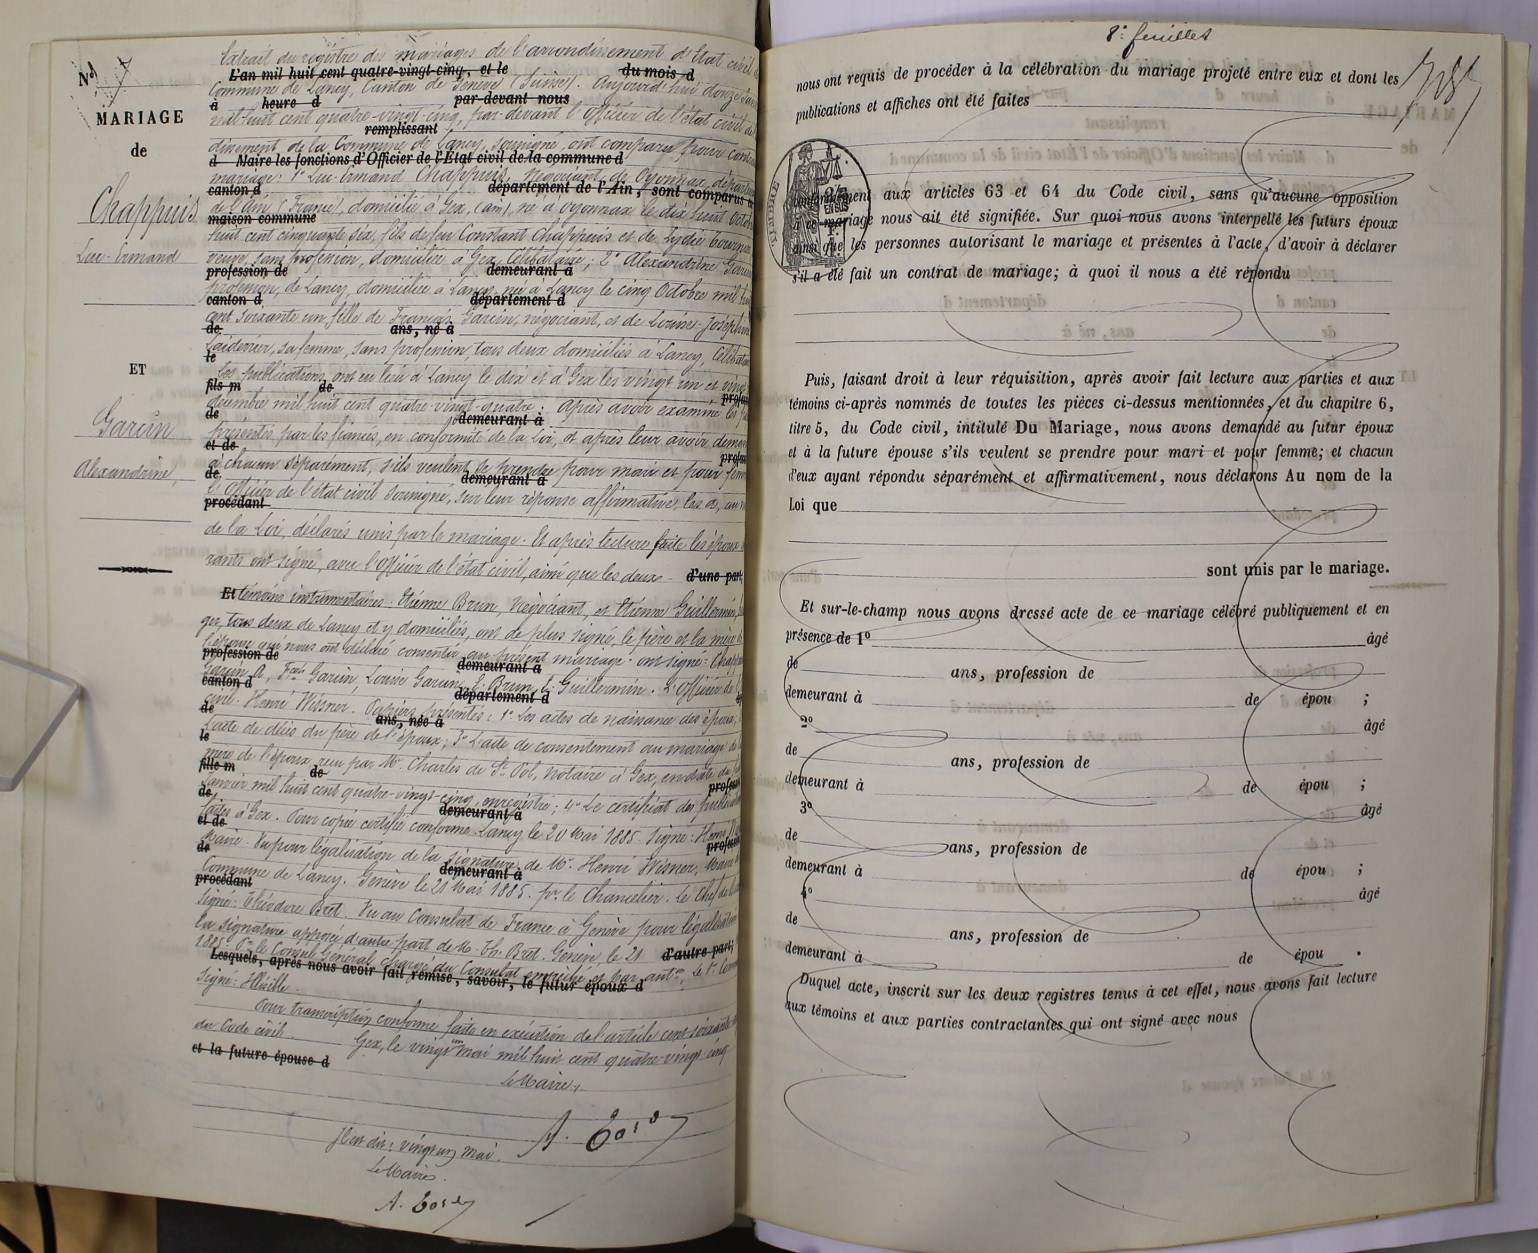 Nº 7
MARIAGE
de
Chappuis
Luc-Ermand
ET
Garin
Alexandrine,
Extrait du registre des mariages de l'arrondissement d'Etat civil
L'an mil huit cent quatre-vingt-cinq, et le du mois d
Commune de Lancy, Canton de Genève (Suisse). Aujourd'hui douze
à heure d par-devant nous
mil huit cent quatre-vingt-cinq, par-devant l'officier de l'état civil de
remplissant
dissement de la Commune de Lancy, soussigné, ont comparu pour
d Maire les fonctions d'Officier de l'Etat civil de la commune d
mariage: 1º Luc-Ermand Chappuis, Négociant, de Oyonnax,
canton d département de l'Ain, sont comparus
de l'Ain (France), domicilié à Gex, (ain), né à Oyonnax le dix huit
maison commune
huit cent cinquante six, fils de feu Constant Chappuis et de Lydie
veuve, sans profession, domiciliée à Gex, Célibataire; 2º Alexandrine
profession de demeurant à
profession, de Lancy, domiciliée à Lancy, née à Lancy le cinq Octobre mil
canton d département d
cent soixante un, fille de François Garin, négociant, et de Louise-Joséphine
de ans, né à
sa femme, sans profession, tous deux domiciliés à Lancy,
le
Les publications ont eu lieu à Lancy le dix et à Gex les vingt un et
fils m de
décembre mil huit cent quatre-vingt-quatre: Après avoir examiné les
de demeurant à
présentés par les fiancés, en conformité de la Loi, et après leur avoir
et de
à chacun séparément, s'ils veulent se prendre pour mari et pour
de demeurant à
l'officier de l'état civil soussigné, sur leur réponse affirmative, les a, au
procédant
de la Loi, déclarés unis par le mariage. Et après lecture faite les époux
ont signé, avec l'officier de l'état civil, ainsi que les deux d'une part;
Et témoins instrumentaires: Etienne Brun, Négociant, et Etienne Guillermin,
tous deux de Lancy et y domiciliés, ont de plus signé, le père et la mère
l'épouse qui nous ont déclaré consentir au présent mariage. ont signé:
profession de demeurant à
Garin A, Garin, Louise Garin, E. Brun, E. Guillermin. L'officier de
canton d département d
civil: Henri Wisner. Papiers présentés: 1º Les actes de naissance des époux;
de ans, née à
L'acte de décès du père de l'époux; 3º L'acte de consentement au mariage de
le
mère de l'époux reçu par Mr Charles de St Pol, notaire à Gex, en date du
fille m de
Janvier mil huit cent quatre-vingt-cinq, enregistré; 4º Le certificat des
de demeurant à
faites à Gex. Pour copie certifiée conforme. Lancy le 20 Mai 1885. Signé:
et de
Maire. Vu pour légalisation de la signature de Mr. Henri Wisner, Maire
de demeurant à
Commune de Lancy. Genève le 21 Mai 1885. pr. le Chancelier. Le Chef de
procédant
Signé: Théodore Bret. Vu au Consulat de France à Genève pour légalisation
La signature apposée d'autre part de M. Th. Bret. Genève, le 21 d'autre part;
1885. Pr. le Consul Général chargé du Consulat
Lesquels, après nous avoir fait remise, savoir, le futur époux d
Signé:
Pour transcription conforme faite en exécution de l'article cent soixante
du Code civil. Gex, le vingt un mai mil huit cent quatre-vingt-cinq
et la future épouse d
Le Maire,
vingt un mai.
Le Maire.
8e feuillet
nous ont requis de procéder à la célébration du mariage projeté entre eux et dont les
publications et affiches ont été faites
TIMBRE
Conformément aux articles 63 et 64 du Code civil, sans qu'aucune opposition
à ce mariage nous ait été signifiée. Sur quoi nous avons interpellé les futurs époux
ainsi que les personnes autorisant le mariage et présentes à l'acte, d'avoir à déclarer
s'il a été fait un contrat de mariage; à quoi il nous a été répondu
Puis, faisant droit à leur réquisition, après avoir fait lecture aux parties et aux
témoins ci-après nommés de toutes les pièces ci-dessus mentionnées, et du chapitre 6,
titre 5, du Code civil, intitulé Du Mariage, nous avons demandé au futur époux
et à la future épouse s'ils veulent se prendre pour mari et pour femme; et chacun
d'eux ayant répondu séparément et affirmativement, nous déclarons Au nom de la
Loi que
sont unis par le mariage.
Et sur-le-champ nous avons dressé acte de ce mariage célébré publiquement et en
présence de 1º âgé
de ans, profession de
demeurant à de épou ;
2º âgé
de ans, profession de
demeurant à de épou ;
3º âgé
de ans, profession de
demeurant à de épou ;
4º âgé
de ans, profession de
demeurant à de épou .
Duquel acte, inscrit sur les deux registres tenus à cet effet, nous avons fait lecture
aux témoins et aux parties contractantes qui ont signé avec nous